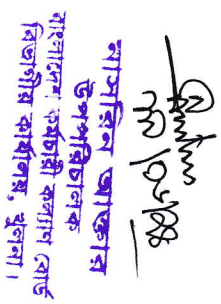 নাসরিন আক্তার
উপপরিচালক
বাংলাদেশ কর্মচারী কল্যাণ বোর্ড
বিভাগীয় কার্যালয়, খুলনা।